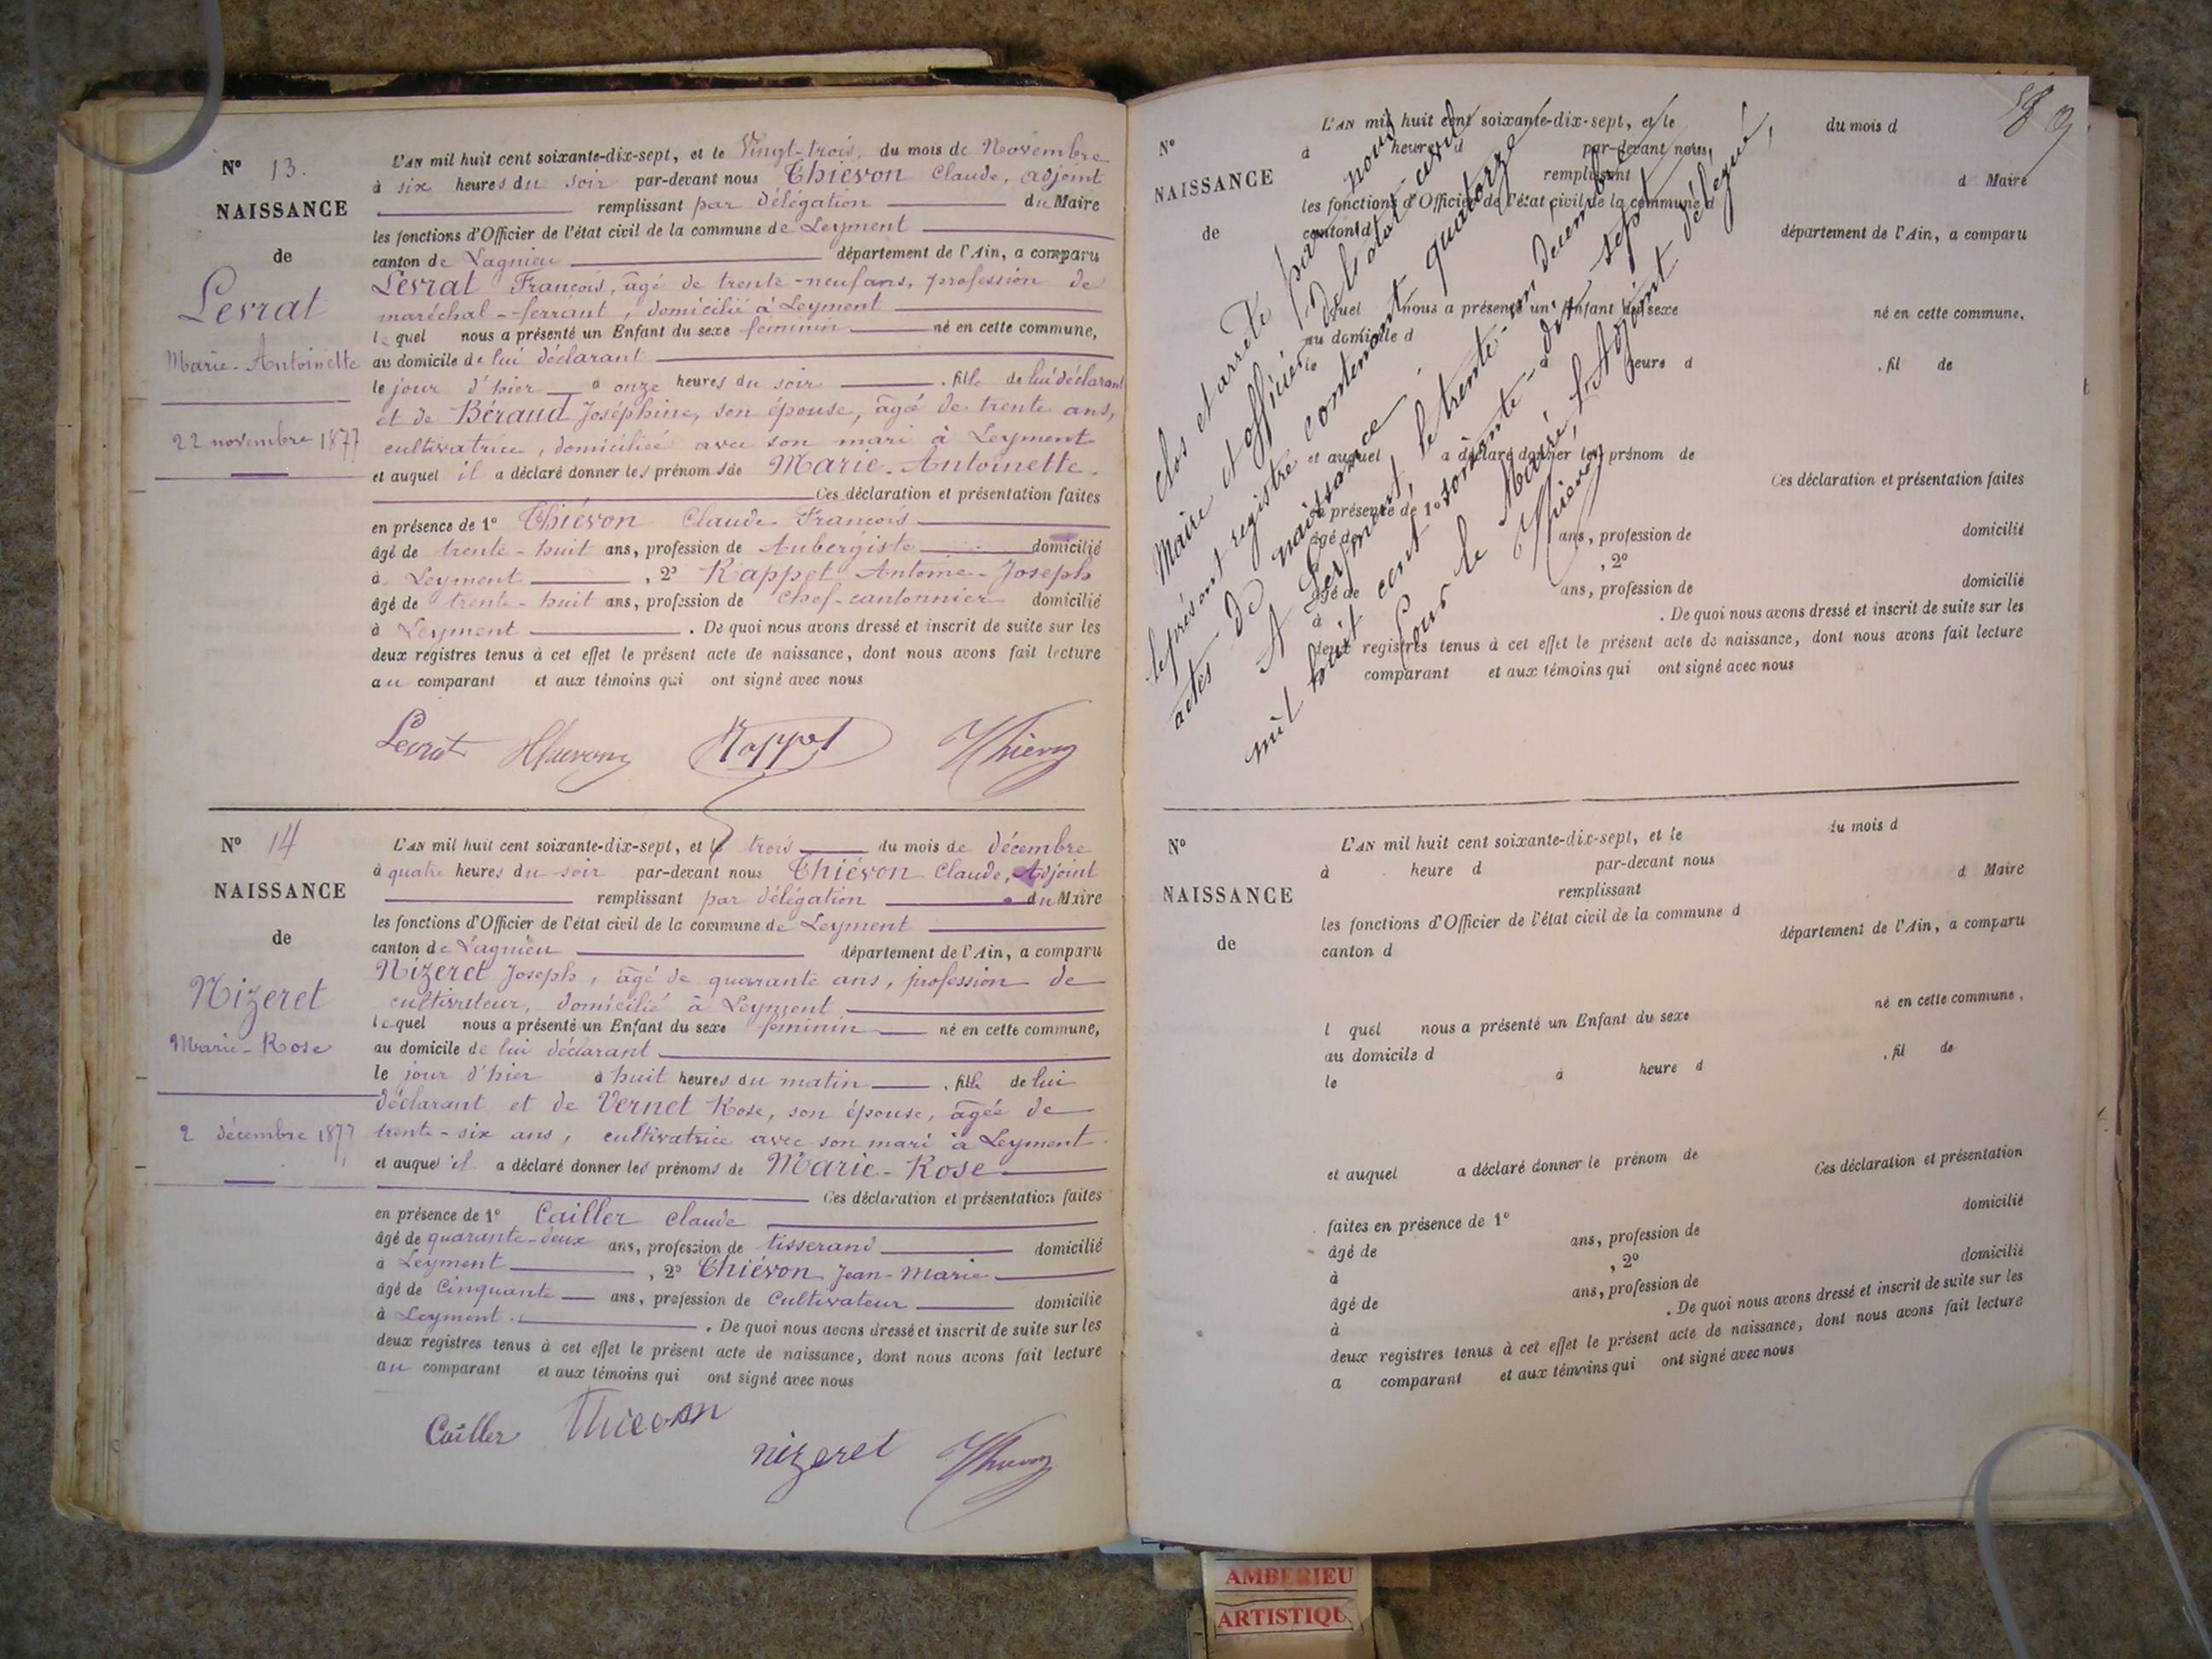 N° 13.
NAISSANCE
de
Levrat
Marie-Antoinette
22 novembre 1877
L'AN mil huit cent soixante-dix-sept, et le Vingt-trois, du mois de Novembre
à six heures du soir par-devant nous Thiévon Claude, adjoint
remplissant par délégation du Maire
les fonctions d'Officier de l'état civil de la commune de Leyment
canton de Lagnieu département de l'Ain, a comparu
Levrat François, âgé de trente-neuf ans, profession de
maréchal-ferrant, domicilié à Leyment
lequel nous a présenté un Enfant du sexe féminin né en cette commune,
au domicile de lui déclarant
le jour d'hier à onze heures du soir, fille de lui déclarant
et de Béraud Joséphine, son épouse, âgée de trente ans,
cultivatrice, domiciliée avec son mari à Leyment
et auquel il a déclaré donner les prénoms de Marie-Antoinette.
Ces déclaration et présentation faites
en présence de 1° Thiévon Claude-François
âgé de trente-huit ans, profession de Aubergiste domicilié
à Leyment, 2° Rappet Antoine-Joseph
âgé de trente-huit ans, profession de chef-cantonnier domicilié
à Leyment. De quoi nous avons dressé et inscrit de suite sur les
deux registres tenus à cet effet le présent acte de naissance, dont nous avons fait lecture
au comparant et aux témoins qui ont signé avec nous
Levrat Thievon Rappet Thievon
N° 14
NAISSANCE
de
Nizeret
Marie-Rose
2 décembre 1877
L'AN mil huit cent soixante-dix-sept, et le trois du mois de décembre
à quatre heures du soir par-devant nous Thiévon Claude, Adjoint
remplissant par délégation du Maire
les fonctions d'Officier de l'état civil de la commune de Leyment
canton de Lagnieu département de l'Ain, a comparu
Nizeret Joseph, âgé de quarante ans, profession de
cultivateur, domicilié à Leyment
lequel nous a présenté un Enfant du sexe féminin né en cette commune,
au domicile de lui déclarant
le jour d'hier à huit heures du matin, fille de lui
déclarant et de Vernet Rose, son épouse, âgée de
trente-six ans, cultivatrice avec son mari à Leyment.
et auquel il a déclaré donner les prénoms de Marie-Rose
Ces déclaration et présentation faites
en présence de 1° Cailler Claude
âgé de quarante-deux ans, profession de tisserand domicilié
à Leyment, 2° Thiévon Jean-Marie
âgé de Cinquante ans, profession de Cultivateur domicilié
à Leyment. De quoi nous avons dressé et inscrit de suite sur les
deux registres tenus à cet effet le présent acte de naissance, dont nous avons fait lecture
au comparant et aux témoins qui ont signé avec nous
Cailler Thievon
nizeret Thievon
N°
NAISSANCE
de
L'AN mil huit cent soixante-dix-sept, et le du mois d
à heure d par-devant nous,
remplissant d Maire
les fonctions d'Officier de l'état civil de la commune d
canton d département de l'Ain, a comparu
l quel nous a présenté un Enfant du sexe né en cette commune,
au domicile d
le à heure d , fil de
et auquel a déclaré donner le prénom de
Ces déclaration et présentation faites
en présence de 1°
âgé de ans, profession de domicilié
à , 2°
âgé de ans, profession de domicilié
à . De quoi nous avons dressé et inscrit de suite sur les
deux registres tenus à cet effet le présent acte de naissance, dont nous avons fait lecture
comparant et aux témoins qui ont signé avec nous
Clos et arrêté par nous
Maire et officier de l'état-civil
le présent registre contenant quatorze
actes de naissance.
A Leyment, le trente-un décembre
mil huit cent soixante-dix-sept
Pour le Maire, l'Adjoint délégué,
Thievon
N°
NAISSANCE
de
L'AN mil huit cent soixante-dix-sept, et le du mois d
à heure d par-devant nous
remplissant d Maire
les fonctions d'Officier de l'état civil de la commune d
canton d département de l'Ain, a comparu
l quel nous a présenté un Enfant du sexe né en cette commune,
au domicile d
le à heure d , fil de
et auquel a déclaré donner le prénom de
Ces déclaration et présentation
faites en présence de 1° domicilié
âgé de ans, profession de
à , 2° domicilié
âgé de ans, profession de
à . De quoi nous avons dressé et inscrit de suite sur les
deux registres tenus à cet effet le présent acte de naissance, dont nous avons fait lecture
a comparant et aux témoins qui ont signé avec nous
AMBERIEU
ARTISTIQU